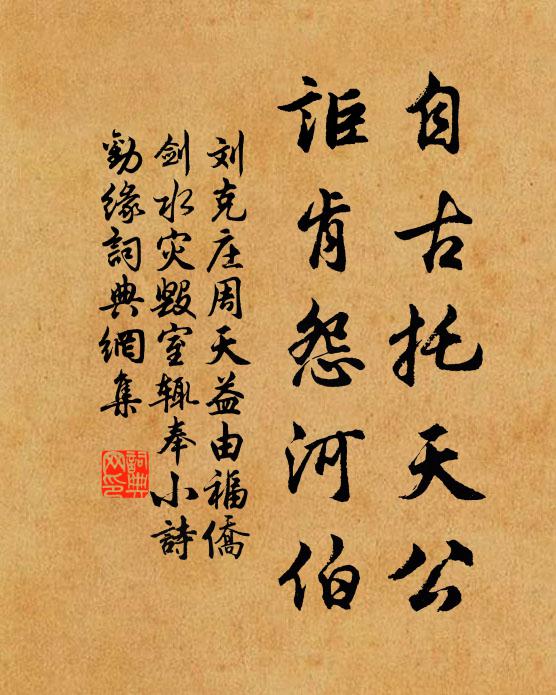 自古托天公
詎肯怨河伯
刘克庄周天益由福僑
剑水灾毁室辄奉小詩
勤缘詞典網集
詞典网印